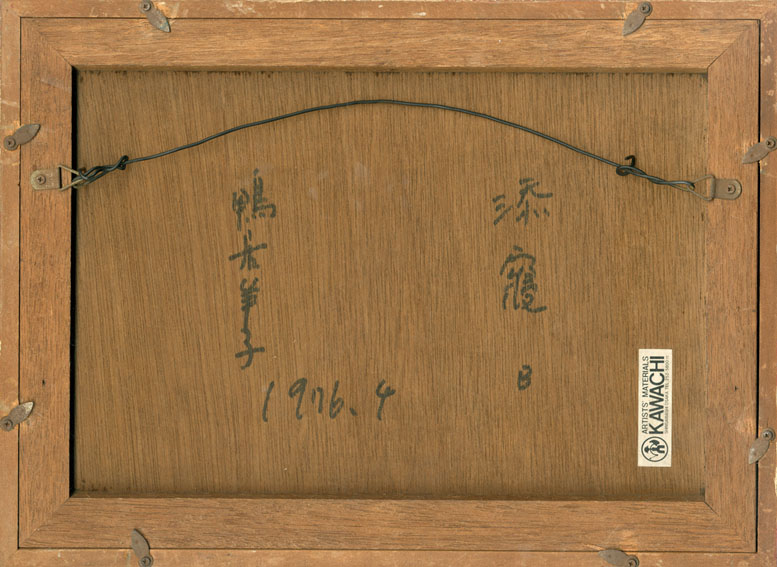 添寢
B
鴨居羊子
1976.4
ARTISTS' MATERIALS
KAWACHI